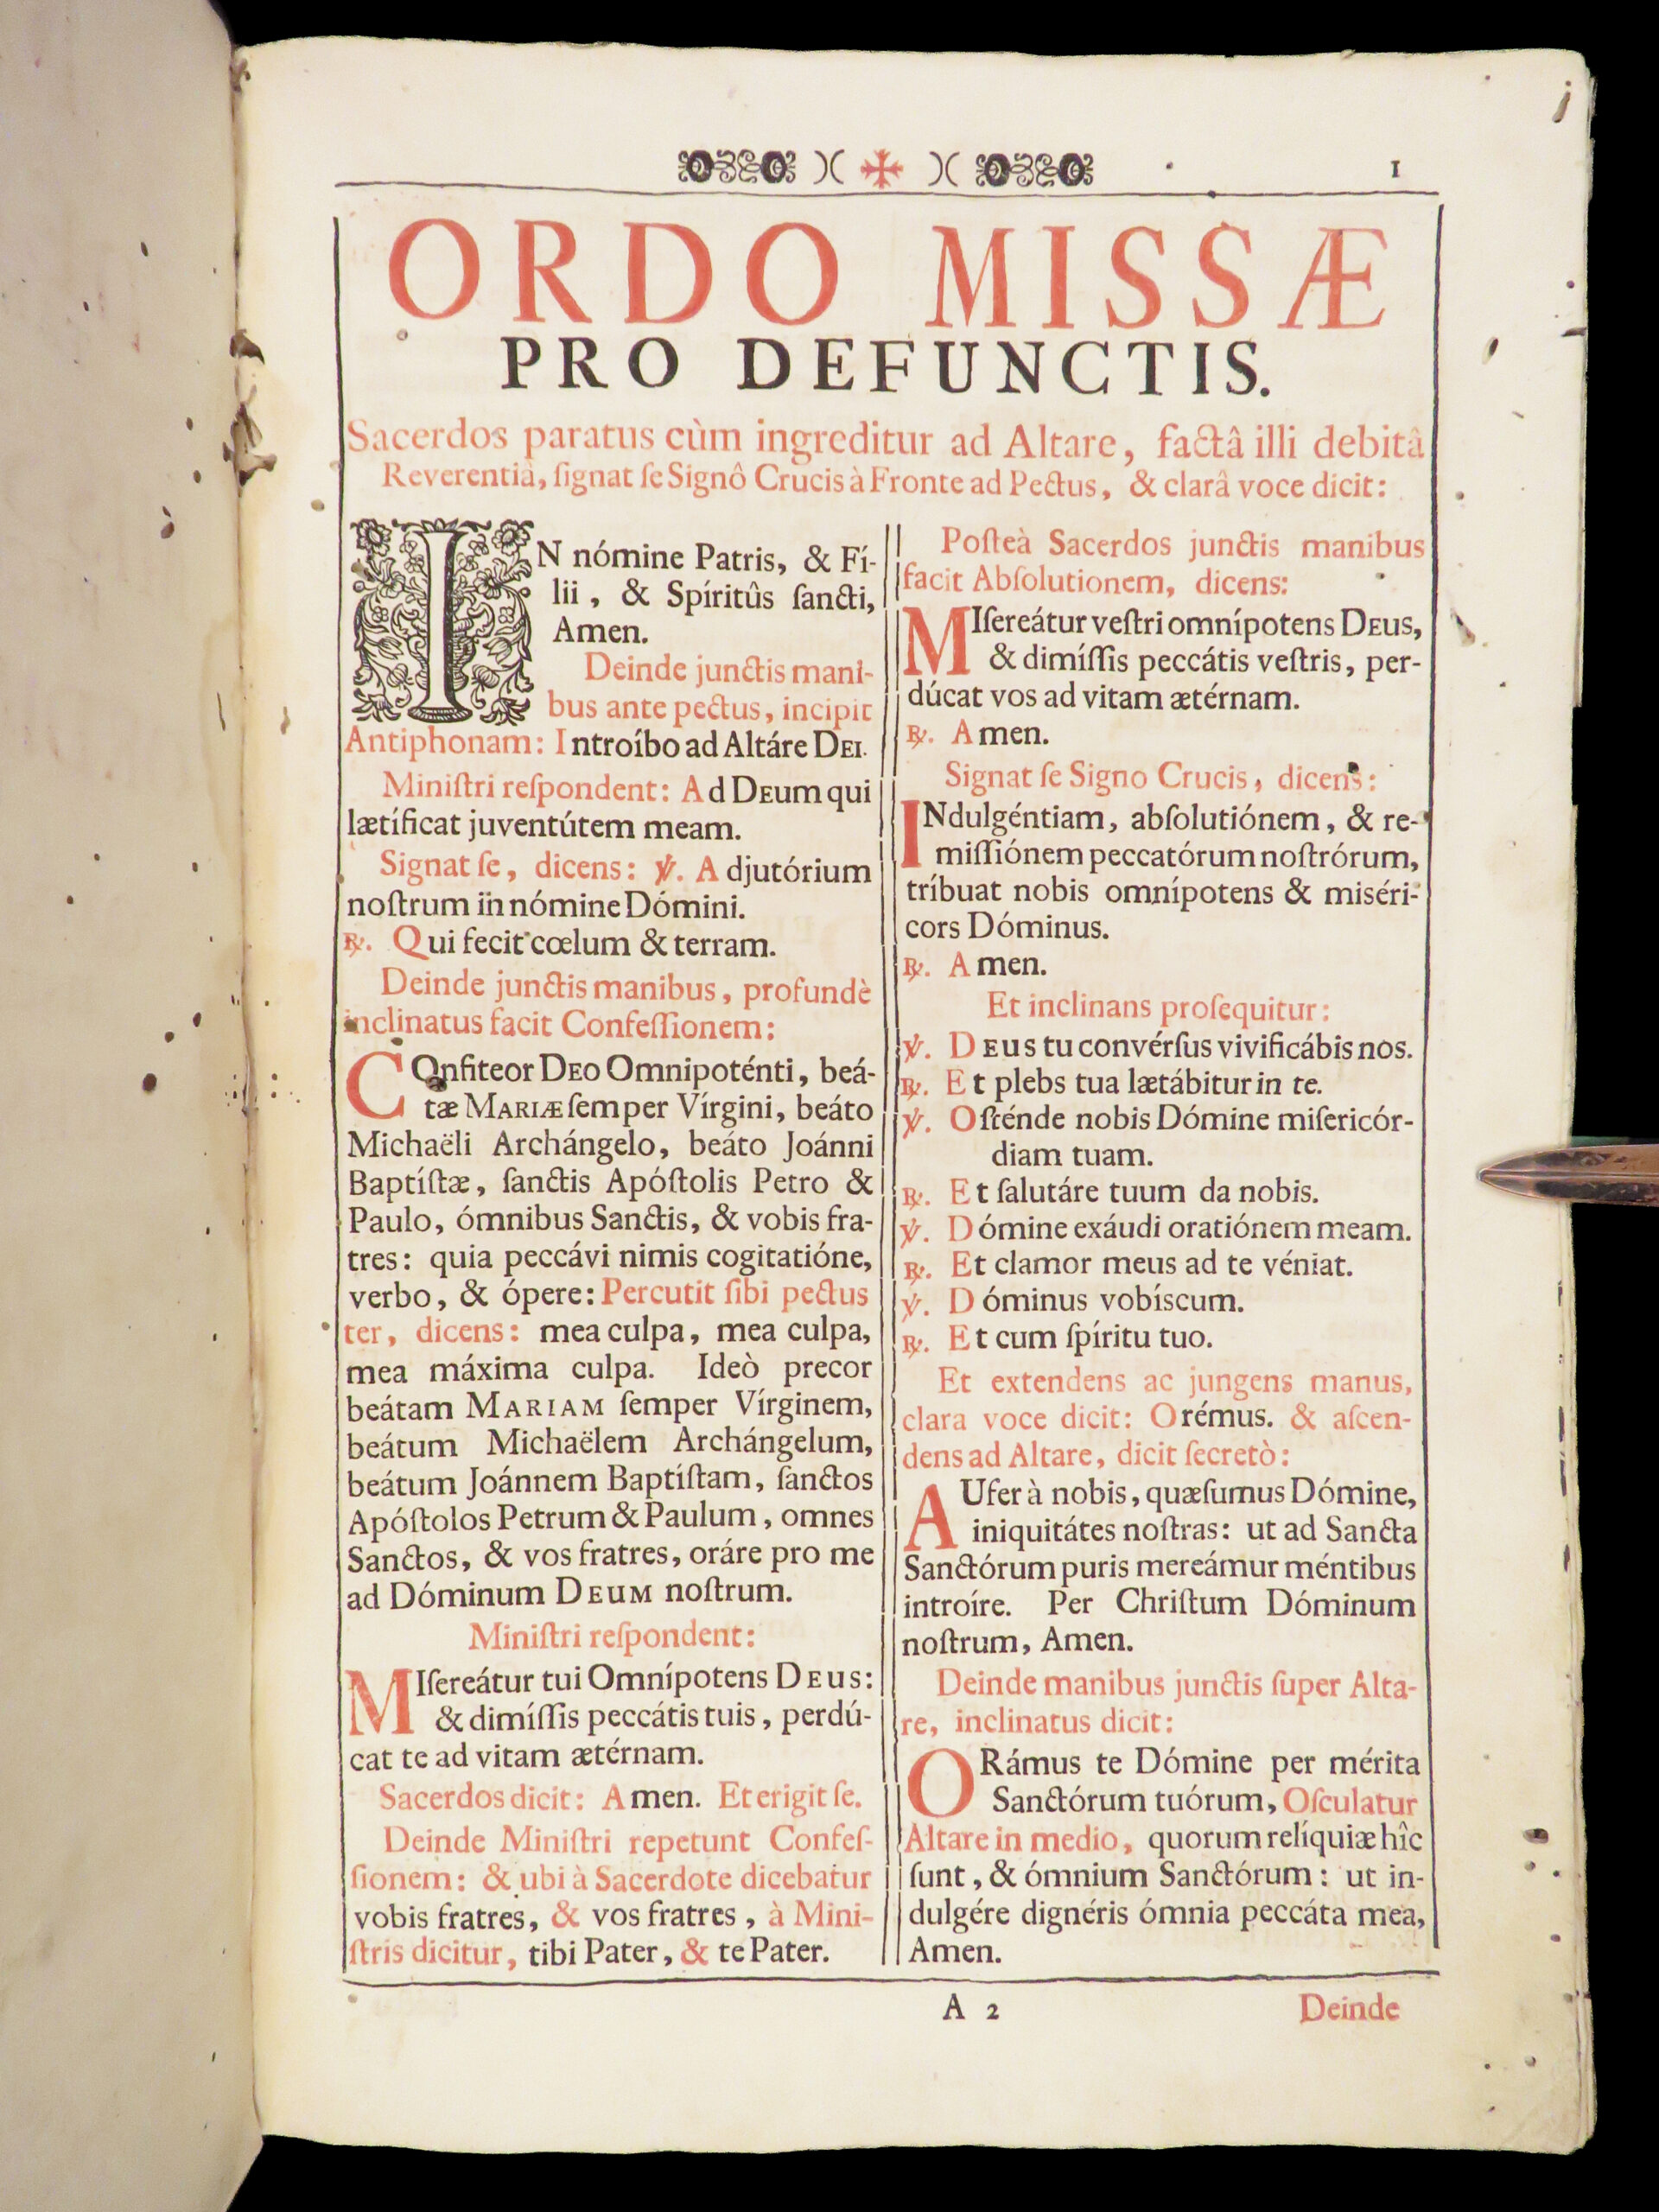 1
ORDO MISSÆ
PRO DEFUNCTIS.
Sacerdos paratus cùm ingreditur ad Altare, factâ illi debitâ
Reverentiâ, ſignat ſe Signô Crucis à Fronte ad Pectus, & clarâ voce dicit:
IN nómine Patris, & Fí-
lii, & Spíritûs ſancti,
Amen.
Deinde junctis mani-
bus ante pectus, incipit
Antiphonam: Introíbo ad Altáre DEI.
Miniſtri reſpondent: Ad DEum qui
lætíficat juventútem meam.
Signat ſe, dicens: ℣. Adjutórium
noſtrum in nómine Dómini.
℟. Qui fecit cœlum & terram.
Deinde junctis manibus, profundè
inclinatus facit Confeſſionem:
COnfiteor DEO Omnipoténti, beá-
tæ MARIÆ ſemper Vírgini, beáto
Michaëli Archángelo, beáto Joánni
Baptíſtæ, ſanctis Apóſtolis Petro &
Paulo, ómnibus Sanctis, & vobis fra-
tres: quia peccávi nimis cogitatióne,
verbo, & ópere: Percutit ſibi pectus
ter, dicens: mea culpa, mea culpa,
mea máxima culpa. Ideò precor
beátam MARIAM ſemper Vírginem,
beátum Michaëlem Archángelum,
beátum Joánnem Baptíſtam, ſanctos
Apóſtolos Petrum & Paulum, omnes
Sanctos, & vos fratres, oráre pro me
ad Dóminum DEUM noſtrum.
Miniſtri reſpondent:
MIſereátur tui Omnípotens DEUS:
& dimíſſis peccátis tuis, perdú-
cat te ad vitam ætérnam.
Sacerdos dicit: Amen. Et erigit ſe.
Deinde Miniſtri repetunt Confeſ-
ſionem: & ubi à Sacerdote dicebatur
vobis fratres, & vos fratres, à Mini-
ſtris dicitur, tibi Pater, & te Pater.
Poſteà Sacerdos junctis manibus
facit Abſolutionem, dicens:
MIſereátur veſtri omnípotens DEUS,
& dimíſſis peccátis veſtris, per-
dúcat vos ad vitam ætérnam.
℟. Amen.
Signat ſe Signo Crucis, dicens:
INdulgéntiam, abſolutiónem, & re-
miſſiónem peccatórum noſtrórum,
tríbuat nobis omnípotens & miséri-
cors Dóminus.
℟. Amen.
Et inclinans proſequitur:
℣. DEUS tu convérſus vivificábis nos.
℟. Et plebs tua lætábitur in te.
℣. Oſténde nobis Dómine miſericór-
diam tuam.
℟. Et ſalutáre tuum da nobis.
℣. Dómine exáudi oratiónem meam.
℟. Et clamor meus ad te véniat.
℣. Dóminus vobíscum.
℟. Et cum ſpíritu tuo.
Et extendens ac jungens manus,
clara voce dicit: Orémus. & aſcen-
dens ad Altare, dicit ſecretò:
AUfer à nobis, quæſumus Dómine,
iniquitátes noſtras: ut ad Sancta
Sanctórum puris mereámur méntibus
introíre. Per Chriſtum Dóminum
noſtrum, Amen.
Deinde manibus junctis ſuper Alta-
re, inclinatus dicit:
ORámus te Dómine per mérita
Sanctórum tuórum, Oſculatur
Altare in medio, quorum relíquiæ hîc
ſunt, & ómnium Sanctórum: ut in-
dulgére dignéris ómnia peccáta mea,
Amen.
A 2
Deinde